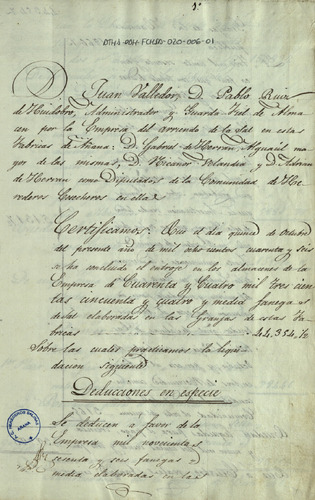 1º
ATHA-DAH-FCHSA-020-006-01
Juan Valledor, D. Pablo Ruiz
de Huidobro, Administrador y Guarda Fiel de Alma
cen por la Empresa del arriendo de la Sal en estas
Fabricas de Añana: D. Gabriel de Herran, Alguacil ma
yor de las mismas, D. Nicanor Orlandia y D. Adrian
de Herran como Diputados de la Comunidad de He
rederos Cosecheros en ella
Certificamos: Que el dia quince de Octubre
del presente año de mil ochocientos cuarenta y seis
se ha concluido el entroje en los almacenes de la
Empresa de Cuarenta y Cuatro mil tres cien
tas cincuenta y cuatro y media fanegas
de Sal elaboradas en las Granjas de estas Fa
bricas 44,354,½
Sobre las cuales practicamos la liqui
dacion siguiente
Deducciones en especie
Se deducen a favor de la
Empresa mil novecientas
y seis fanegas y
media elaboradas en las
AÑANA